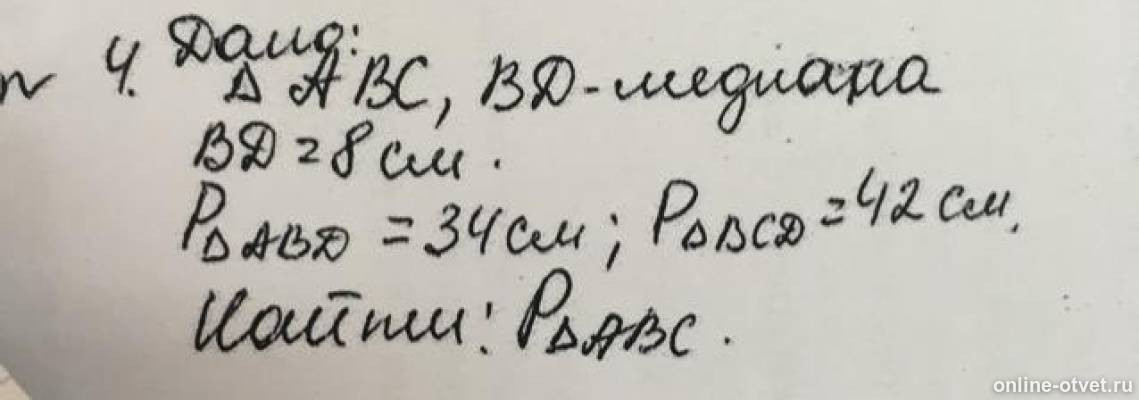 4. Дано:
Δ ABC, BD-медиана
BD = 8 см.
PΔABD = 34 см; PΔBCD = 42 см.
Найти: PΔABC.
online-otvet.ru